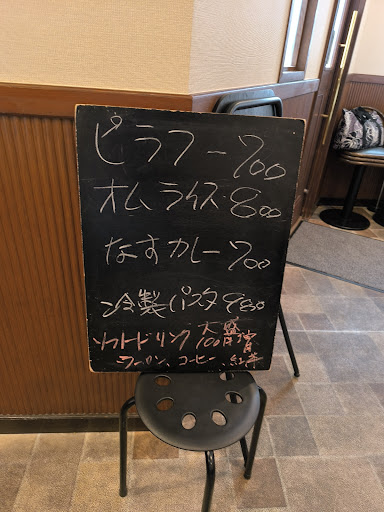 ピラフー700
オムライス 800
なすカレー 700
冷製パスタ 980
ソフトドリンク 大盛100円増
ウーロン、コーヒー、紅茶